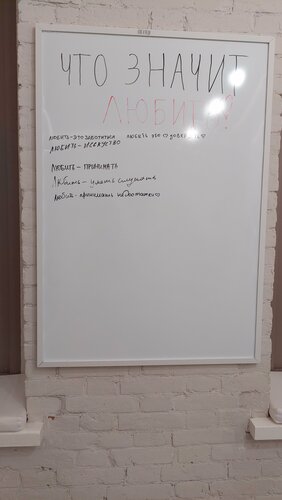 ЧТО ЗНАЧИТ
ЛЮБИТЬ?
ЛЮБИТЬ - ЭТО ЗАБОТИТЬСЯ ЛЮБИТЬ ЭТО
ЛЮБИТЬ - ИСКУССТВО
ЛЮБИТЬ - ПРИНИМАТЬ
Любить - уметь слушать
Любить - принимать недостатки